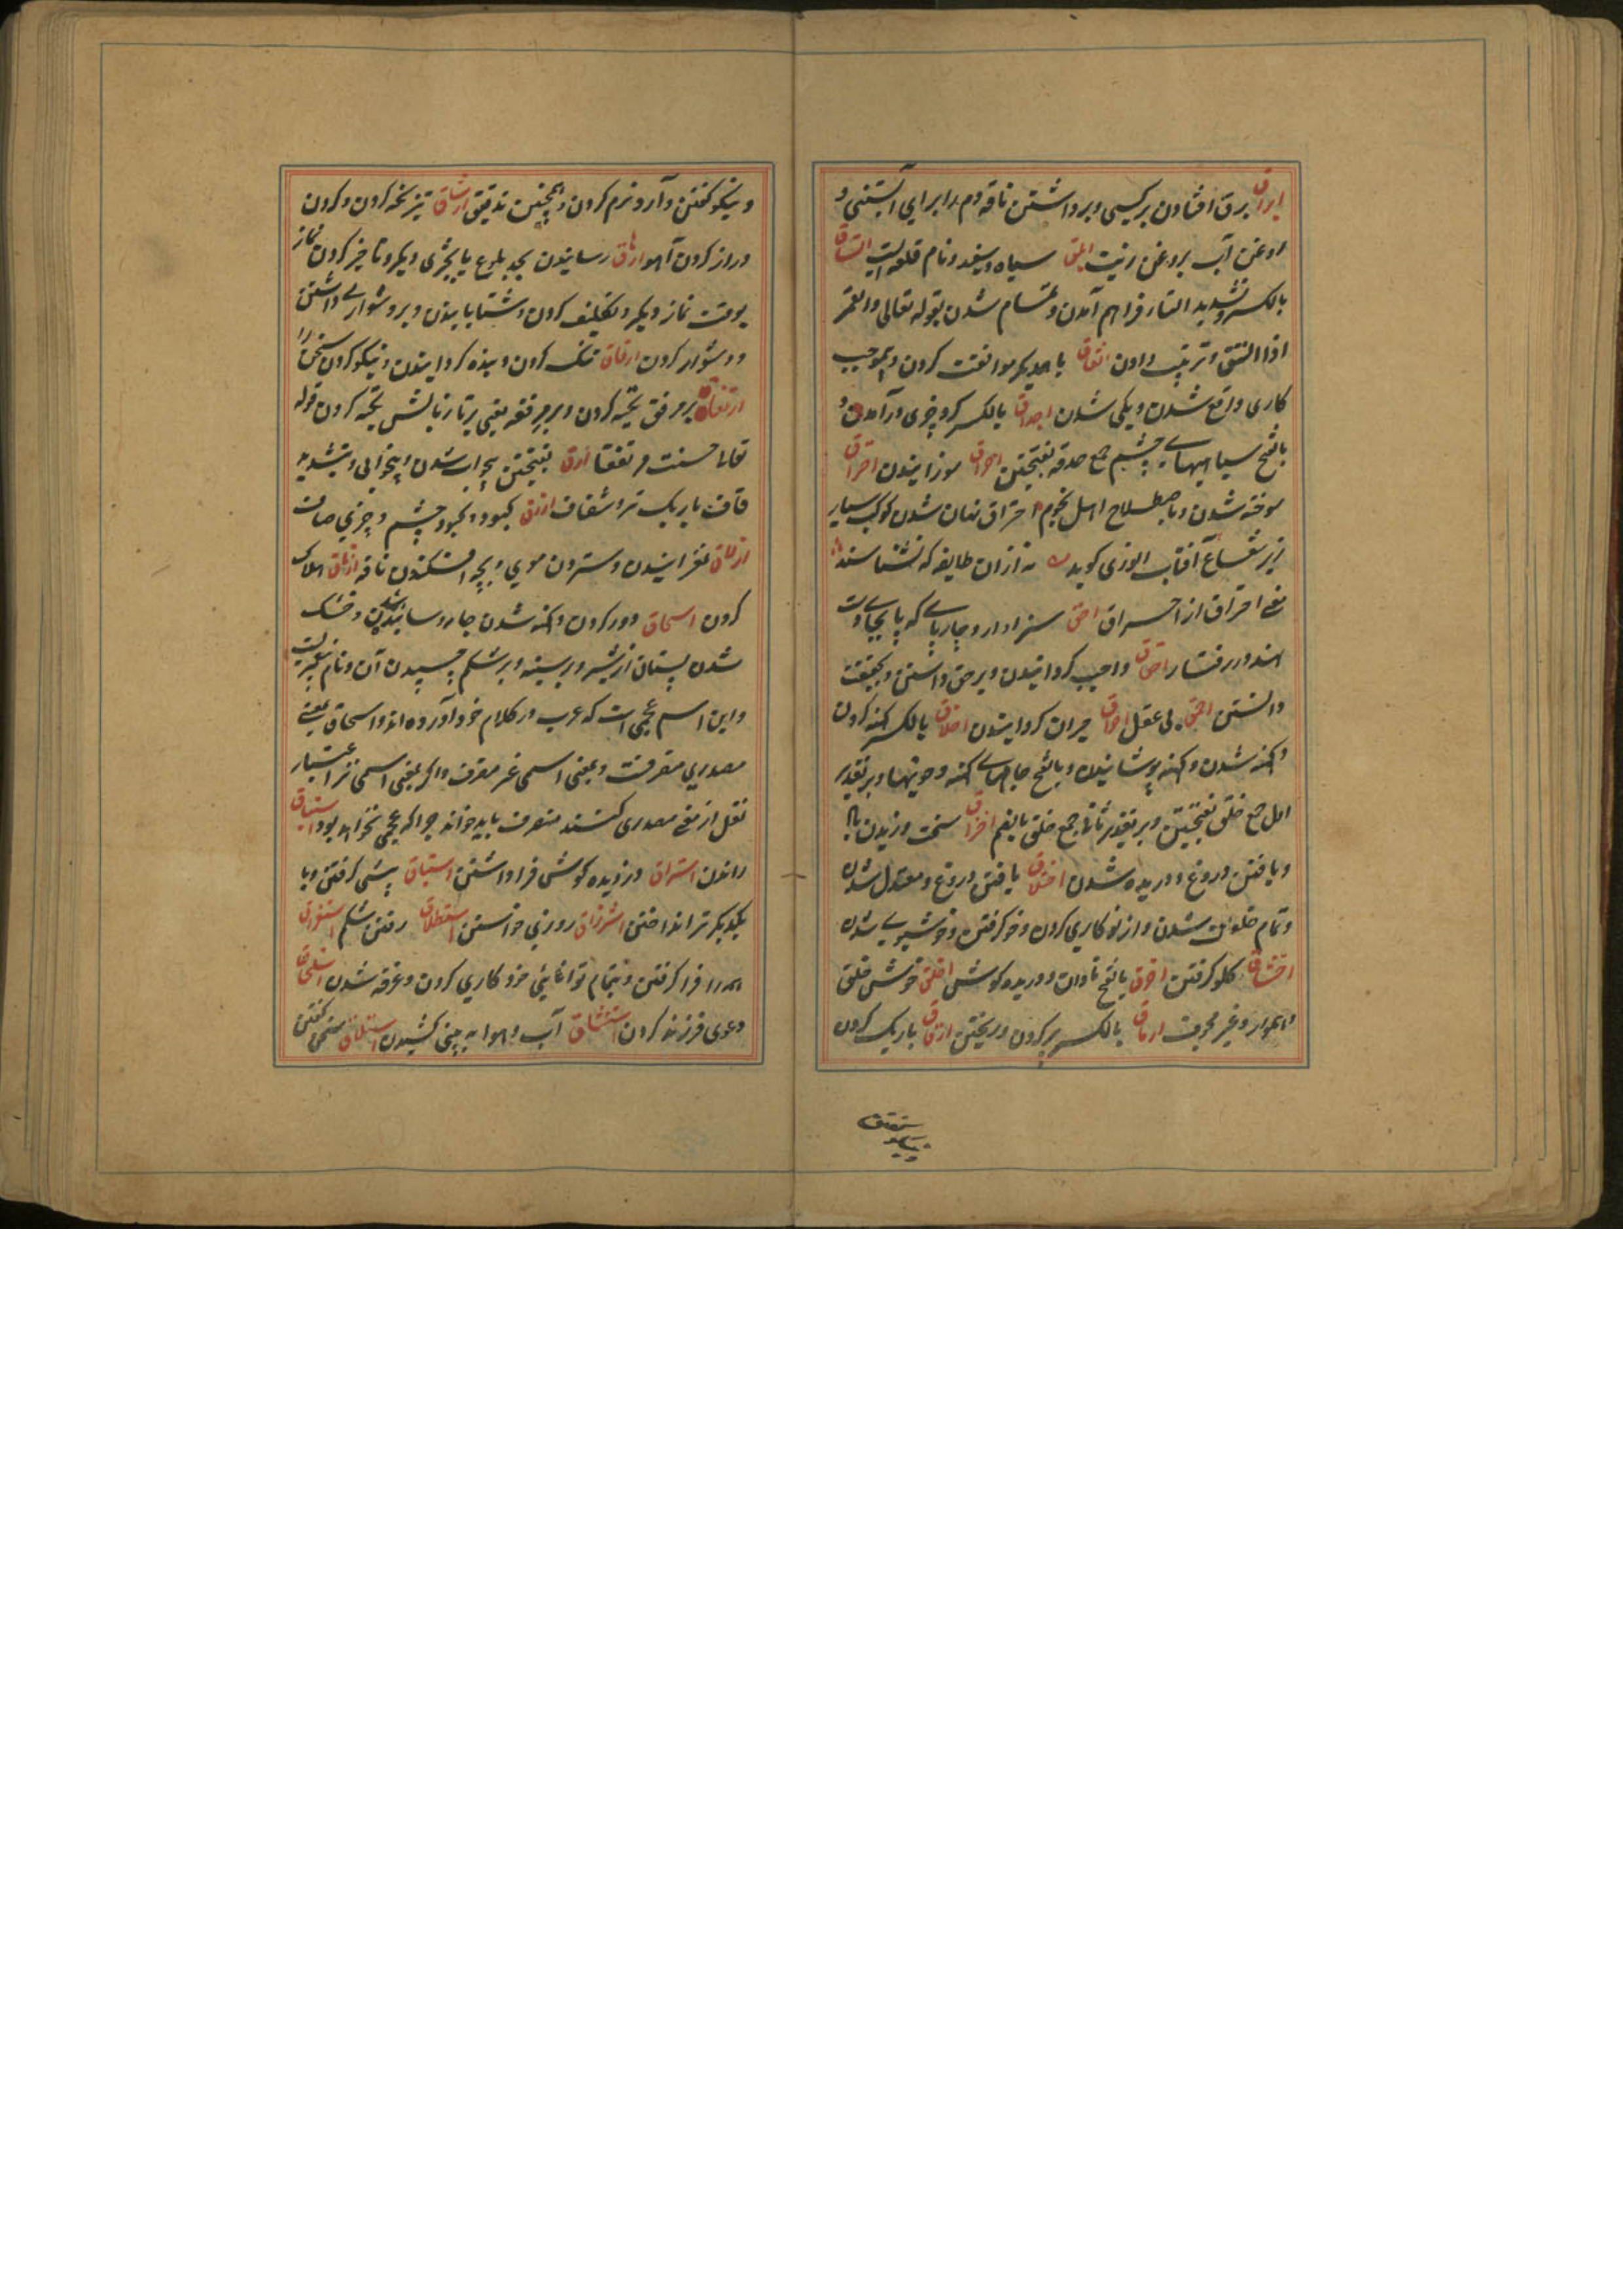 ابراق برق افتادن بر کسی و برداشتن ناقه دم را برای آبستنی و
روغن آب بروغن زیت ابلق سیاه و سفید و نام قلعه ایست اتساق
بالکسر و تشدید التاء فراهم آمدن و تمام شدن بقوله تعالی والقمر
اذا اتسق و ترتیب دادن اتفاق با همدیگر موافقت کردن و بموجب
کاری واقع شدن و یکی شدن احداق بالکسر کرد چیزی درآمدن و
بالفتح سیاهیهای چشم جمع حدقه بفتحتین احراق سوزانیدن احتراق
سوخته شدن و باصطلاح اهل نجوم احتراق نهان شدن کوکب سیار
زیر شعاع آفتاب انوری کوید نه ازان طایفه که نشناسند
معنی احتراق از احراق احق سزاوار و چارپای که پا بجای دست
نهد در رفتار احقاق واجب کردانیدن و بر حق داشتن و بحقیقت
دانستن احمق بی عقل اخراق حیران کردانیدن اخلاق بالکسر کهنه کردن
و کهنه شدن و کهنه پوشانیدن و بالفتح جامهای کهنه و خویها و بر تقدیر
اول جمع خلق بفتحتین و بر تقدیر ثانی جمع خلق بالضم اختراق سخت وزیدن باد
و بافتن دروغ و دریده شدن اختلاق بافتن دروغ و معتدل شدن
و تمام خلقت شدن و از نو کاری کردن و خو کرفتن و خوشبوی شدن
اختناق کلو کرفتن اخرق بالفتح نادان و دریده کوش اخلق خوش خلق
و هموار و غیر مجوف ارهاق بالکسر پر کردن و ریختن ارقاق باریک کردن
و نیکو کفتن و آرد نرم کردن و همچنین تدقیق ارشاق تیز نکه کردن و کردن
دراز کردن آهو ارهاق رسانیدن بحد بلوغ یا بچیزی دیکر و تاخیر کردن نماز
بوقت نماز دیکر و تکلیف کردن و شتابانیدن و بر دشواری داشتن
و دشوار کردن ارقاق تنک کردن و بنده کردانیدن و نیکو کردن سخن را
ارتفاق بر مرفق تکیه کردن و بر مرفقه یعنی بر نازبالش تکیه کردن قوله
تعالی حسنت مرتفقا ارق بفتحتین بیخواب شدن و بیخوابی و بتشدید
قاف باریک تر اشفاف ازرق کبود و کبود چشم و چیزی صاف
ازلاق لغزانیدن و ستردن موی و بچه افکندن ناقه ازهاق هلاک
کردن اسحاق دور کردن و کهنه شدن جامه و سائیدن و خشک
شدن پستان از شیر و بر سینه و بر شکم چسپیدن آن و نام پیغمبریست
و این اسم عجمی است که عرب در کلام خود آورده اند و اسحاق بمعنی
مصدری منصرفست و بمعنی اسمی غیر منصرف و اکر بمعنی اسمی نیز اعتبار
نقل از معنی مصدری کنند منصرف باید خواند چرا که عجمی نخواهد بود استیاق
راندن استراق دزدیده کوش فرا داشتن استباق پیشی کرفتن و با
یکدیکر تیر انداختن استرزاق روزی خواستن استطلاق رفتن شکم استغراق
همه را فرا کرفتن و بتمام توانائی خود کاری کردن و غرقه شدن استلحاق
دعوی فرزند کردن استنشاق آب و هوا به بینی کشیدن استنطاق سخن کفتن